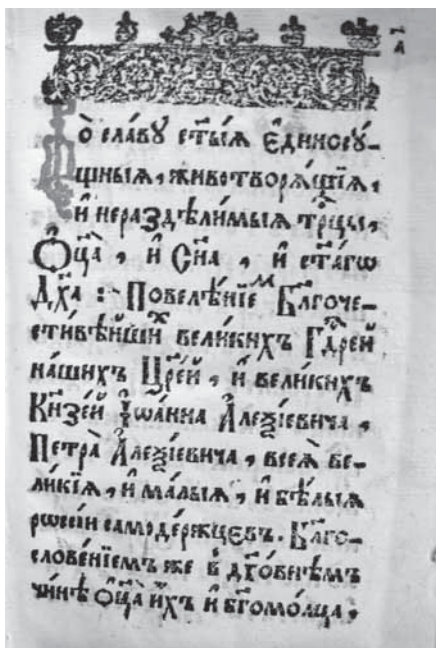 а҃
Во сла́вꙋ ст҃ы́ѧ є҆диносꙋ́-
щныѧ, животворѧ́щїѧ,
и҆ нераздѣли́мыѧ трⷪ҇цы,
Ѻ҆ц҃а̀, и҆ Сн҃а, и҆ ст҃а́гѡ
Дх҃а: Повелѣ́нїемъ Бл҃гоче-
сти́вѣйшихъ вели́кихъ Гдⷭ҇рей
на́шихъ Цр҃е́й, и҆ вели́кихъ
Кн҃зе́й І҆ѡа́нна А҆леѯі́евича,
Петра̀ А҆леѯі́евича, всеѧ̀ ве-
ли́кїѧ, и҆ ма́лыѧ, и҆ бѣ́лыѧ
рѡссі́и самоде́ржцєвъ. Бл҃го-
слове́нїемъ же в̾ дх҃о́внѣмъ
чи́нѣ ѻ҆ц҃а̀ и҆́хъ и҆ бг҃омо́лца,